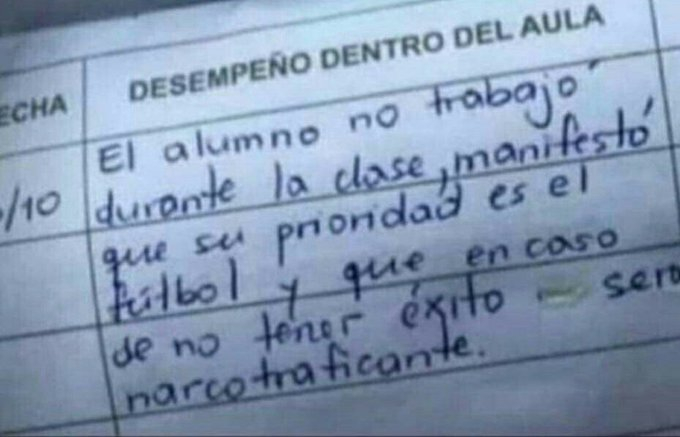 ECHA
DESEMPEÑO DENTRO DEL AULA
/10
El alumno no trabajó
durante la clase, manifestó
que su prioridad es el
fútbol y que en caso
de no tener éxito será
narcotraficante.